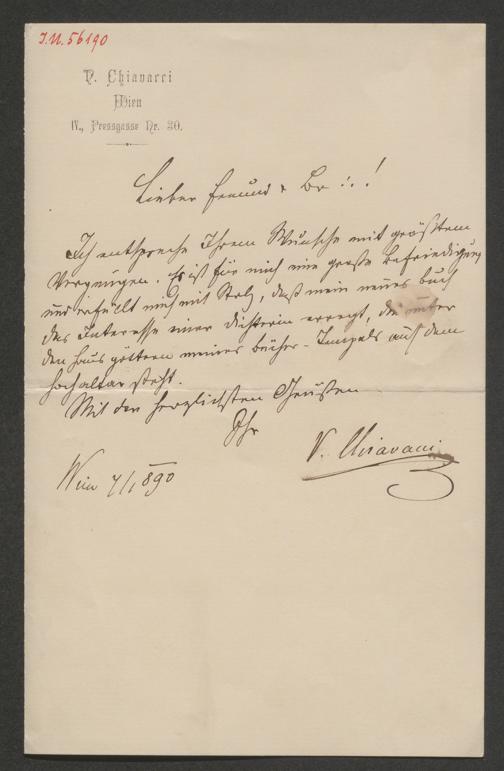 I.N. 56190
V. Chiavacci
Wien
IV., Pressgasse Nr. 30.
Lieber Freund & Br ∴!
Ich entspreche Ihrem Wunsche mit größtem
Vergnügen. Es ist für mich eine große Befriedigung
und erfüllt mich mit Stolz, daß mein neues Buch
das Interesse einer Dichterin erregt, die unter
den Hausgöttern meines Bücher-Tempels auf dem
Hochaltar steht.
Mit den herzlichsten Grüßen
Ihr
V. Chiavacci
Wien 7/1 890